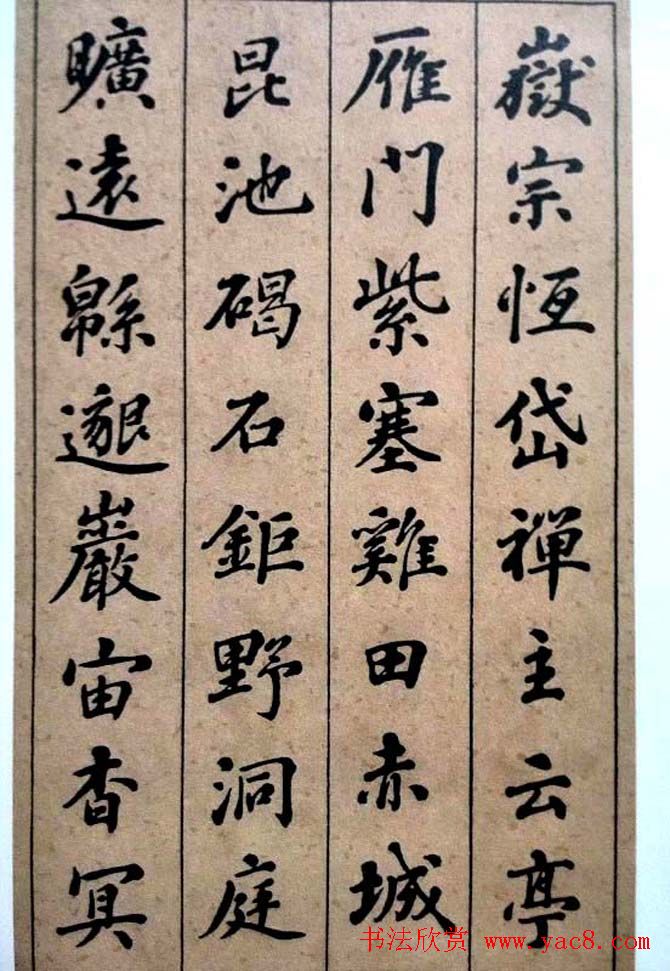 嶽宗恆岱禪主云亭
雁門紫塞雞田赤城
昆池碣石鉅野洞庭
曠遠緜邈巖宙杳冥
书法欣赏 www.yac8.com